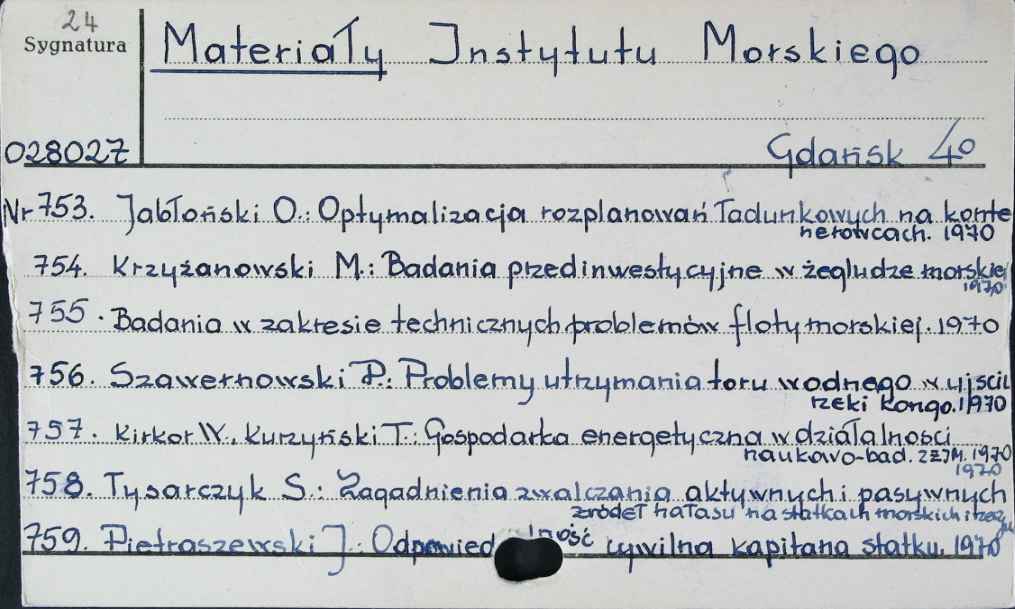 24
Sygnatura
Materiały Instytutu Morskiego
028027
Gdańsk 4°
Nr 753. Jabłoński O.: Optymalizacja rozplanowań ładunkowych na konte
nerowcach. 1970
754. Krzyżanowski M.: Badania przedinwestycyjne w żegludze morskiej
1970
755. Badania w zakresie technicznych problemów floty morskiej. 1970
756. Szawernowski P.: Problemy utrzymania toru wodnego w ujściu
rzeki Kongo. 1970
757. Kirkor W., Kurzyński T.: Gospodarka energetyczna w działalności
naukowo-bad. ZZJM. 1970
1970
758. Tysarczyk S.: Zagadnienia zwalczania aktywnych i pasywnych
źródeł hałasu na statkach morskich i
759. Pietraszewski J.: Odpowied lność cywilna kapitana statku. 1970